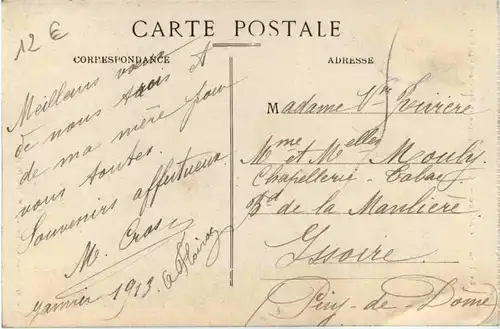 12 €
CARTE POSTALE
CORRESPONDANCE
ADRESSE
Meilleurs vœux
de nous trois et
de ma mère pour
vous toutes.
Souvenirs affectueux.
M. Cros
janvier 1913.
Madame Vve Rivière
Mme et Melles Mouly
Chapellerie - Tabac
Bd de la Manlière
Issoire.
(Puy-de-Dôme)